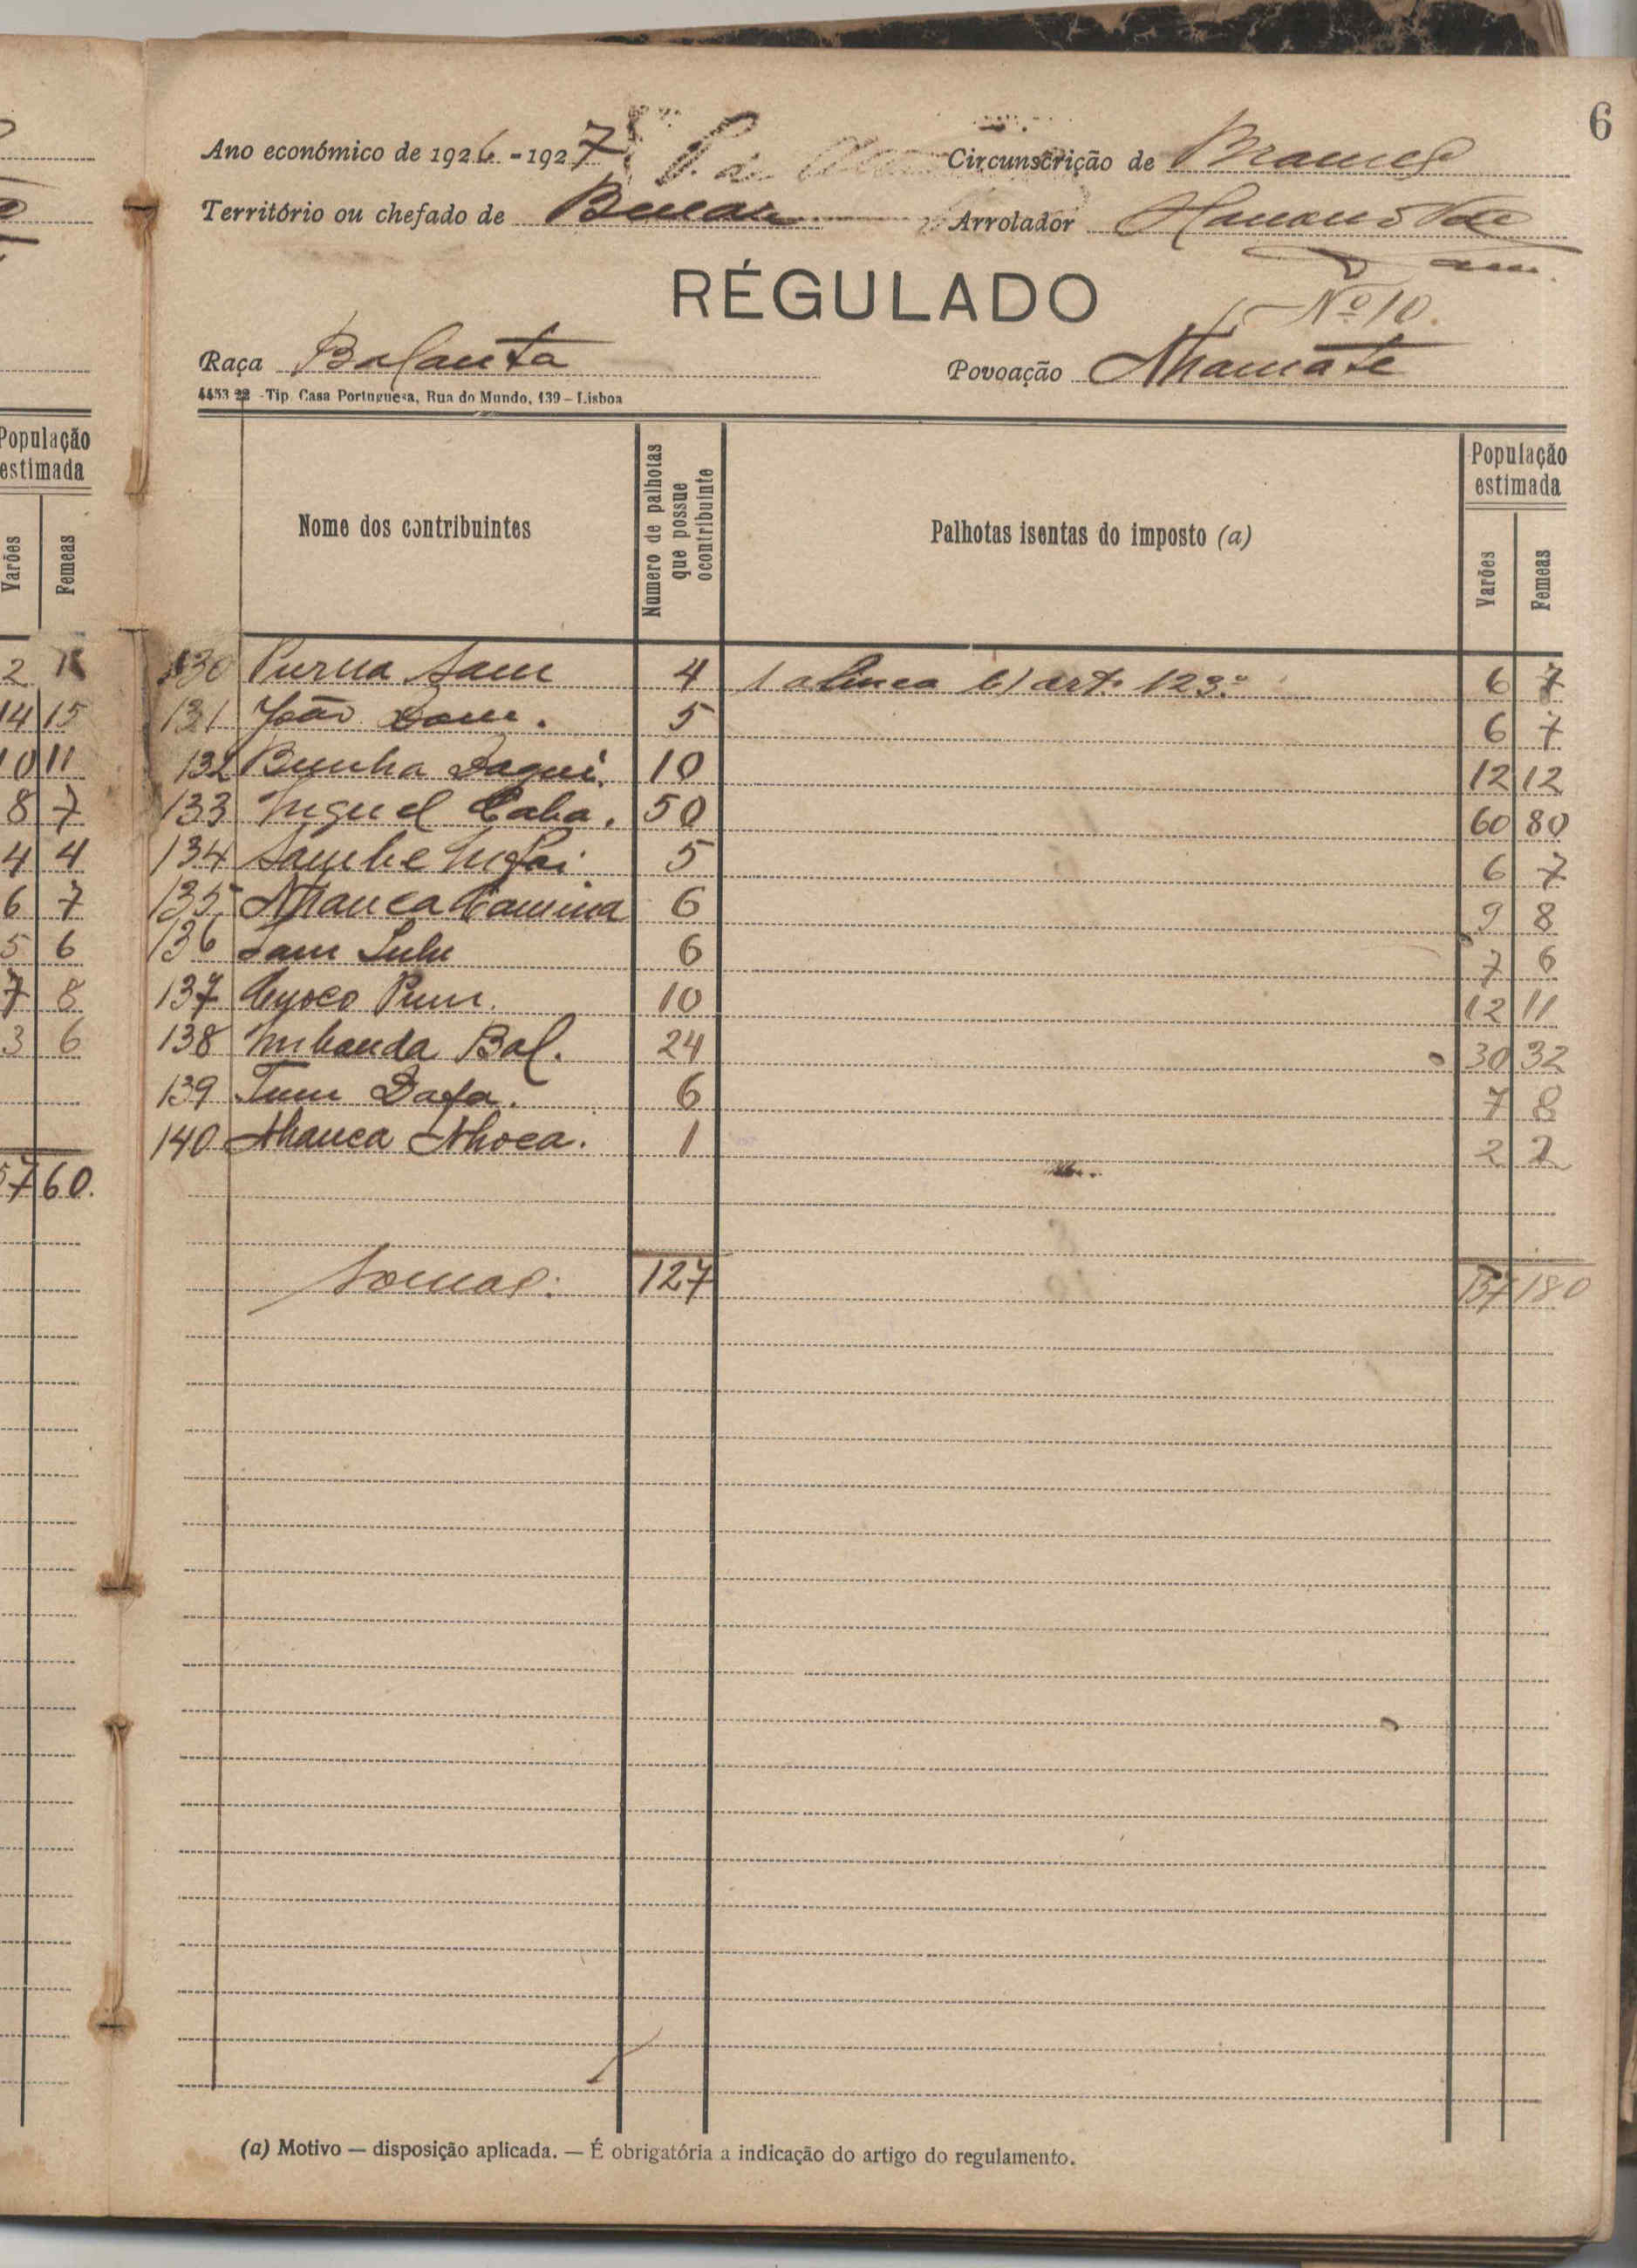 6
Ano económico de 1926-1927 Circunscrição de Brames
Território ou chefado de Binar Arrolador
RÉGULADO
Nº 10.
Raça Balanta Povoação Nhamate
4453 22 - Tip. Casa Portuguesa, Rua do Mundo, 139 - Lisboa
População estimada
Varões Femeas
Nome dos contribuintes Número de palhotas que possue o contribuinte Palhotas isentas do imposto (a) População estimada
Varões Femeas
2
130 Purna Sam 4 1 alinea b) art. 123.º 6 7
14 15
131 João Sam. 5 6 7
10 11
132 Bunha Daqui. 10 12 12
8 7
133 Miguel Caba. 50 60 80
4 4
134 Sambe 5 6 7
6 7
135 Nhanca 6 9 8
5 6
136 Sam Lulu 6 7 6
7 8
137 10 12 11
3 6
138 Mibanda Bal. 24 30 32
139 Tum Dafa. 6 7 8
140 Nhanca Nhoca. 1 2 2
57 60.
Somas: 127 157 180
(a) Motivo — disposição aplicada. — É obrigatória a indicação do artigo do regulamento.